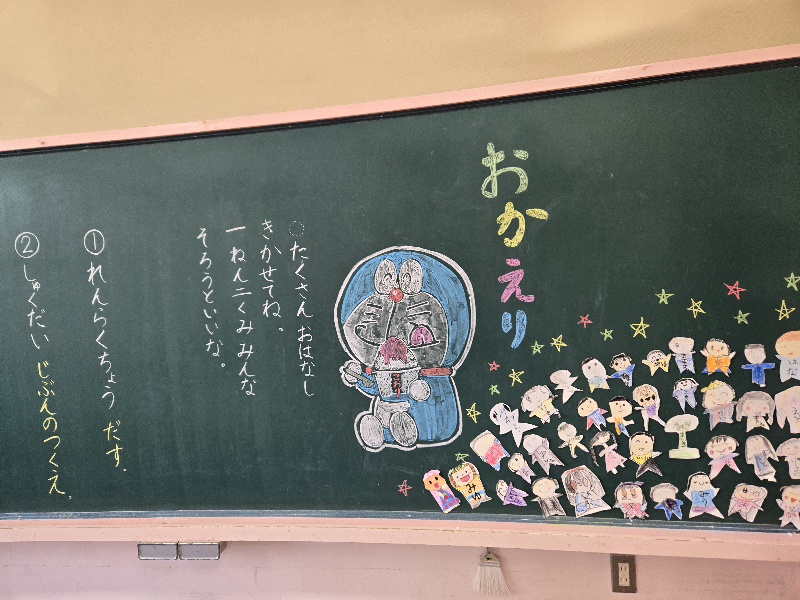 おかえり
○たくさん おはなし
きかせてね。
一ねん二くみ みんな
そろうといいな。
① れんらくちょう だす.
② しゅくだい じぶんのつくえ。
みゆ
みう
はな